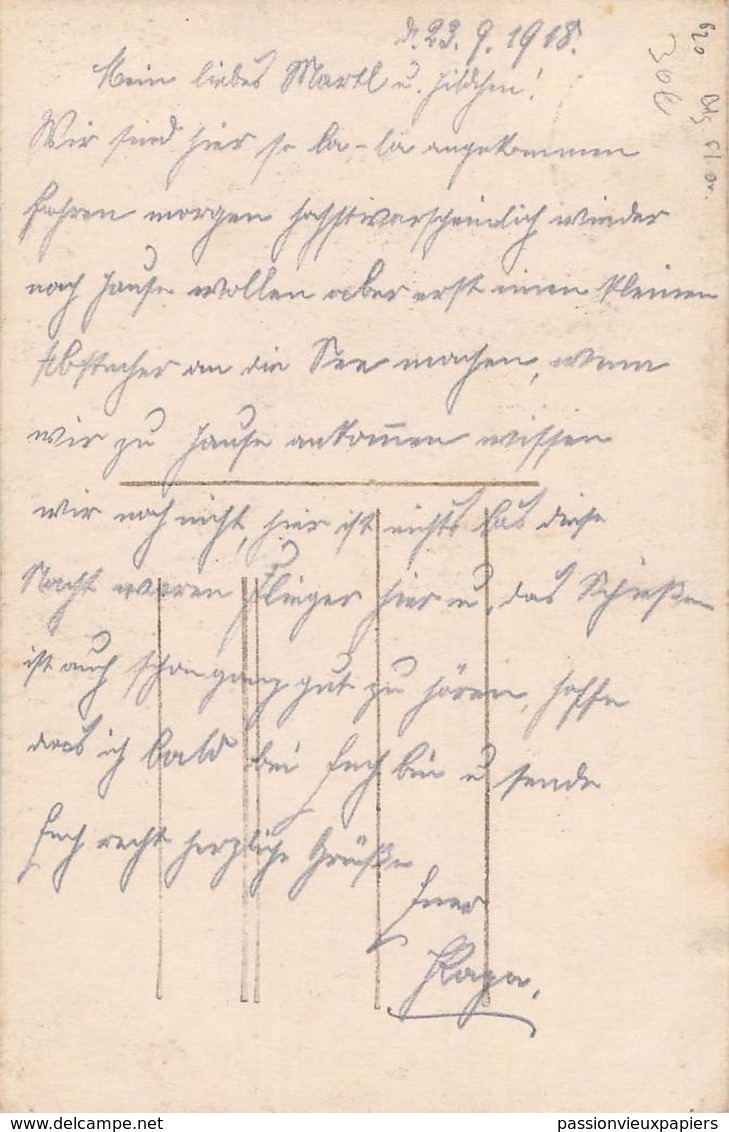 d. 23.9.1918.
Mein liebes Martl u. Hildchen!
Wir sind hier so la-la angekommen
fahren morgen höchstwarscheinlich wieder
nach Hause wollen aber erst einen kleinen
Abstecher an die See machen, wenn
wir zu Hause ankommen wissen
wir noch nicht, hier ist nichts los diese
Nacht waren Flieger hier u. das Schießen
ist auch schon ganz gut zu hören, hoffe
dass ich bald bei Euch bin u sende
Euch recht herzliche Grüße
Euer
Papa.
620
delcampe.net
passionvieuxpapiers